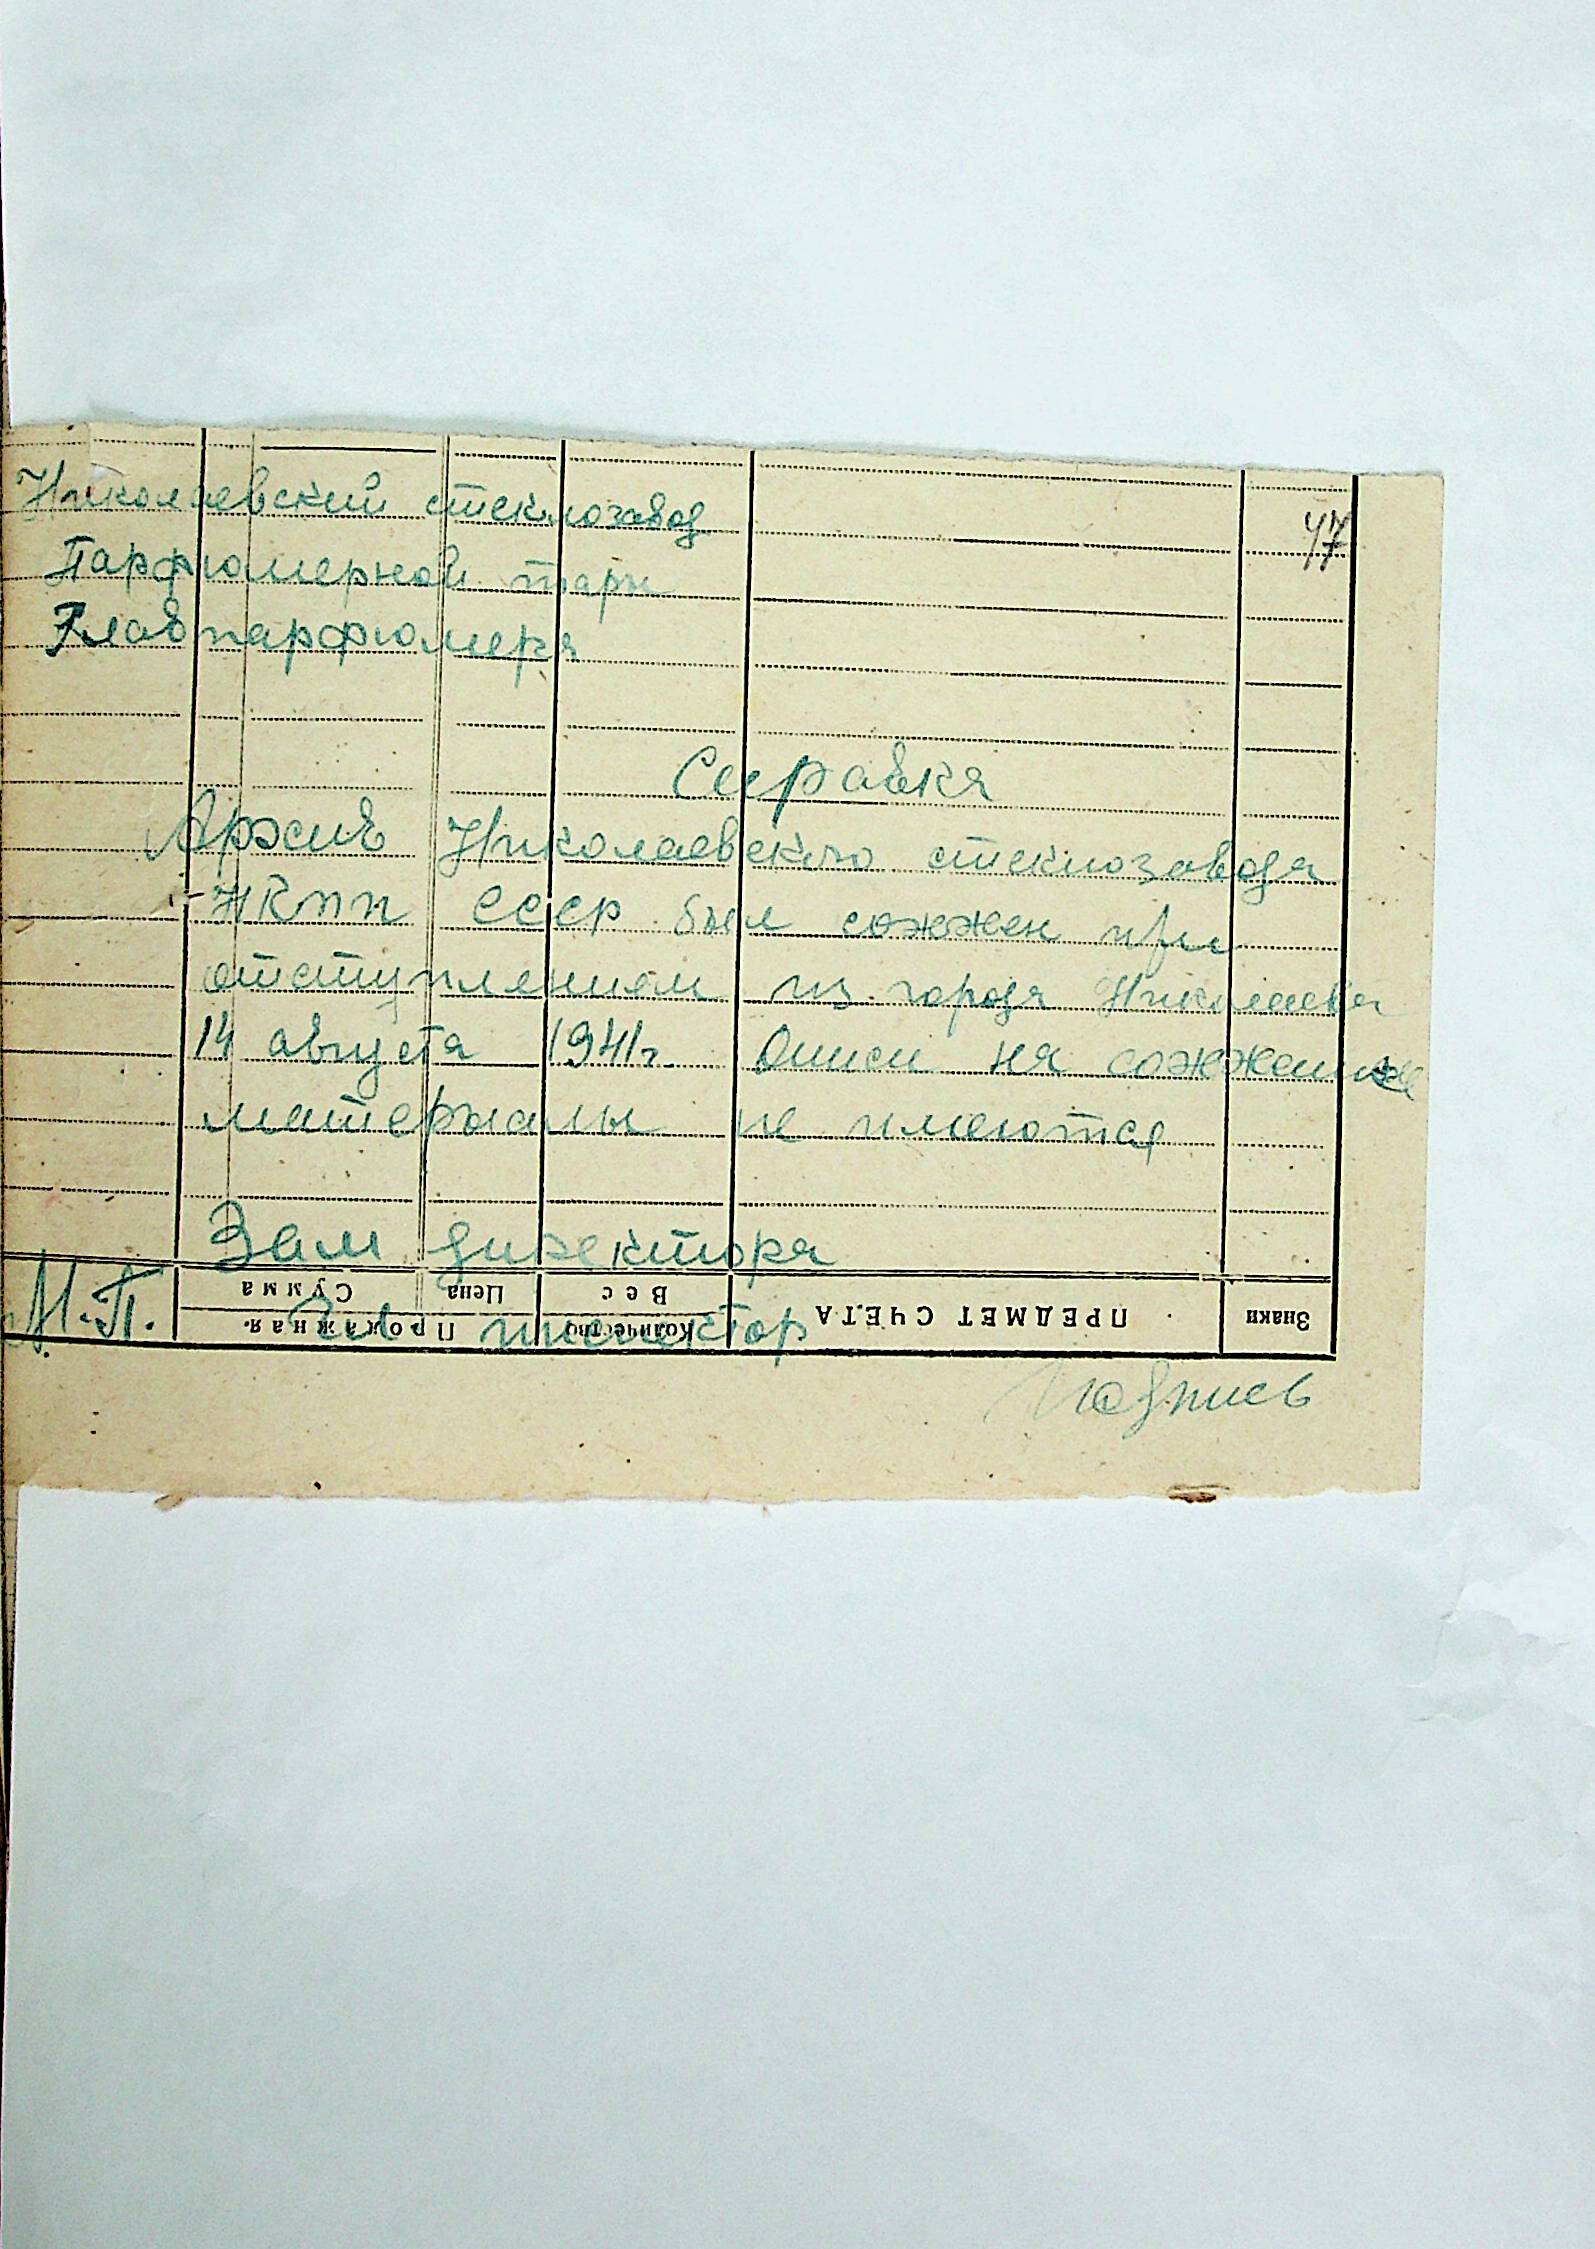 47
Николаевский стеклозавод
Парфюмерной тары
Главпарфюмера
Справка
Архив Николаевского стеклозавода
НКПП СССР был сожжен при
отступлением из города Николаева
14 августа 1941г. Описи на сожженные
матерьалы не имеются
Зам директора
М.П.
инспектор
Подпись
Знаки
ПРЕДМЕТ СЧЕТА
Количество
Вес
Продажная.
Цена
Сумма